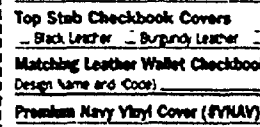 Top Stub Checkbook Covers
_ Black Leather _ Burgundy Leather _
Matching Leather Wallet Checkboo
Design Name and (Code)
Premium Navy Vinyl Cover (#VNAV)